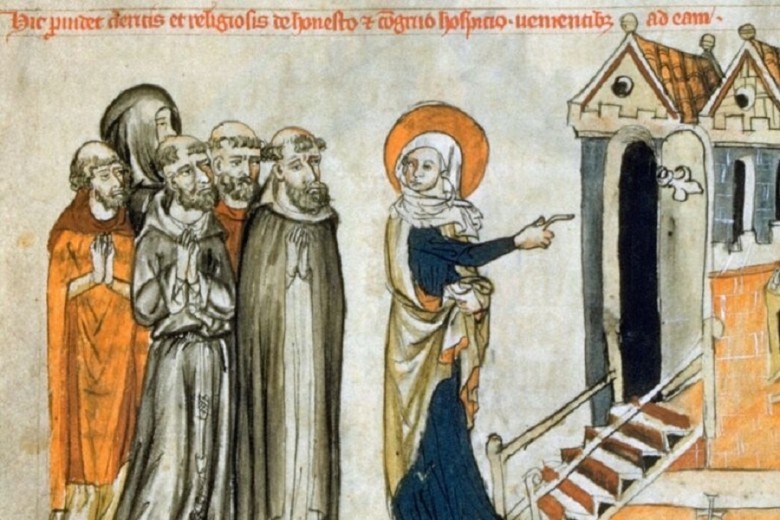 Hic ꝓuidet clericis et religiosis de honesto ⁊ ꝯ̄gruo hospicio · uenientibꝫ ad eam ·